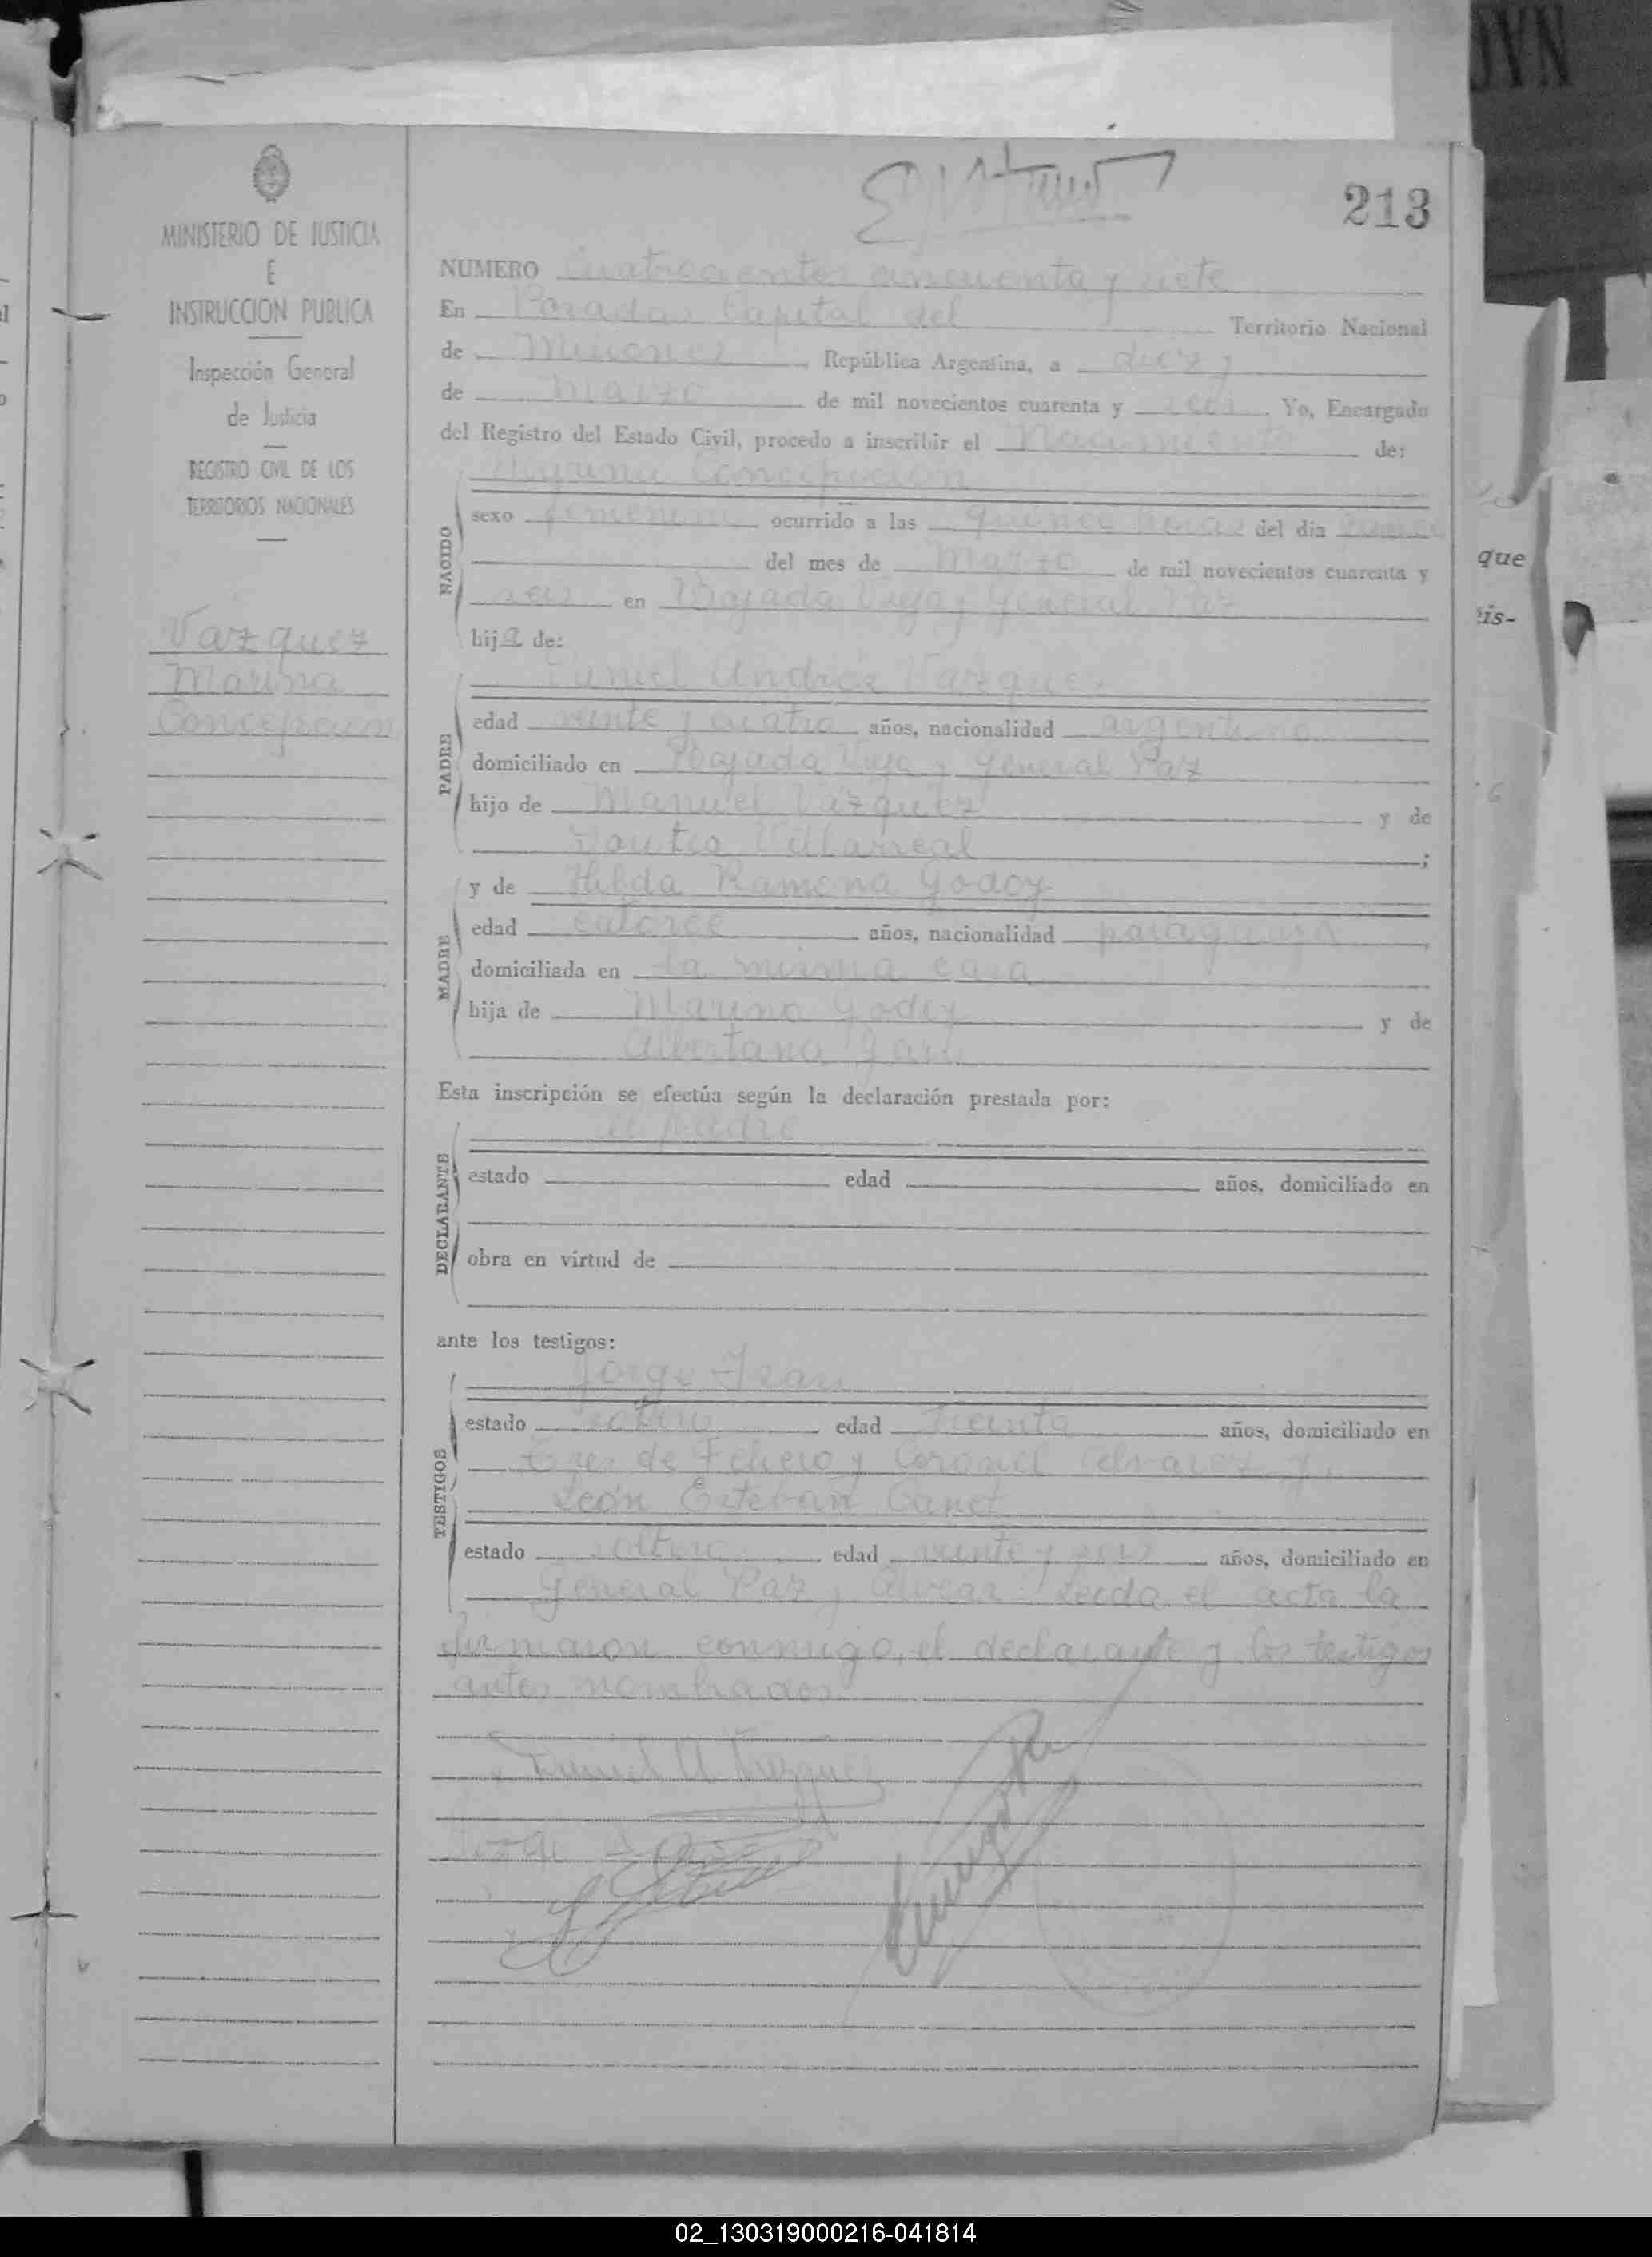 213
MINISTERIO DE JUSTICIA
E
INSTRUCCION PUBLICA
Inspección General
de Justicia
REGISTRO CIVIL DE LOS
TERRITORIOS NACIONALES
Vazquez
Marina
Concepcion
NUMERO Cuatrocientos cincuenta y siete
En Posadas Capital del Territorio Nacional
de Misiones, República Argentina, a
de Marzo de mil novecientos cuarenta y seis. Yo, Encargado
del Registro del Estado Civil, procedo a inscribir el Nacimiento de:
Concepcion
NACIDO
sexo femenino ocurrido a las quince horas del día
del mes de Marzo de mil novecientos cuarenta y
seis en Bajada Vieja y General Paz
hija de:
Daniel Andrés Vazquez
PADRE
edad veinte y cuatro años, nacionalidad argentino
domiciliado en Bajada Vieja y General Paz
hijo de Manuel Vázquez y de
Villarreal;
y de Hilda Ramona Godoy
MADRE
edad catorce años, nacionalidad paraguaya,
domiciliada en la misma casa
hija de Marina Godoy y de
Albertana
Esta inscripción se efectúa según la declaración prestada por:
el padre
DECLARANTE
estado edad años, domiciliado en
obra en virtud de
ante los testigos:
Jorge
TESTIGOS
estado soltero edad treinta años, domiciliado en
Tres de Febrero y Coronel Alvarez y
León Esteban Canet
estado soltero edad veinte y seis años, domiciliado en
General Paz y Alvear. Leida el acta la
firmaron conmigo, el declarante y los testigos
antes nombrados
Daniel A Vazquez
que
is-
02_130319000216-041814